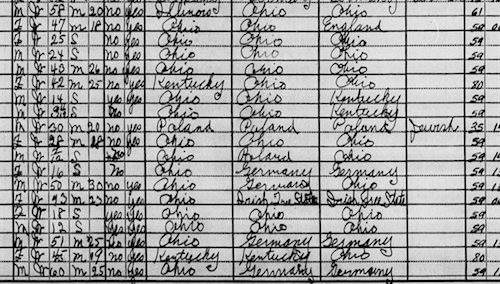 M W 58 m 20 no yes Illinois Ohio 61
F W 47 m 18 no yes Ohio Ohio England 59
F W 25 S no yes Ohio Ohio Ohio 59
M W 24 S no yes Ohio Ohio Ohio 59
M W 43 m 26 no yes Ohio Ohio Ohio 59
F W 42 m 25 no yes Kentucky Ohio Ohio 80
M W 14 S yes yes Ohio Ohio Kentucky 59
M W S no Ohio Ohio Kentucky 59
M W 30 m 20 no yes Poland Poland Poland Jewish 35
F W 28 m 18 no yes Ohio Ohio Ohio 59
M W S Ohio Poland Ohio 59
F W S no Ohio Germany Germany 59
M W 50 m 30 no yes Ohio Germany Ohio 59
F W 43 m 23 no yes Ohio Irish Free State Irish Free State 59
F W 18 S yes yes Ohio Ohio Ohio 59
M W 12 S yes yes Ohio Ohio Ohio 59
M W 51 m 25 no yes Ohio Germany Germany 59
F W 45 m 19 no yes Kentucky Kentucky Ohio 80
M W 60 m 25 no yes Ohio Germany Germany 59